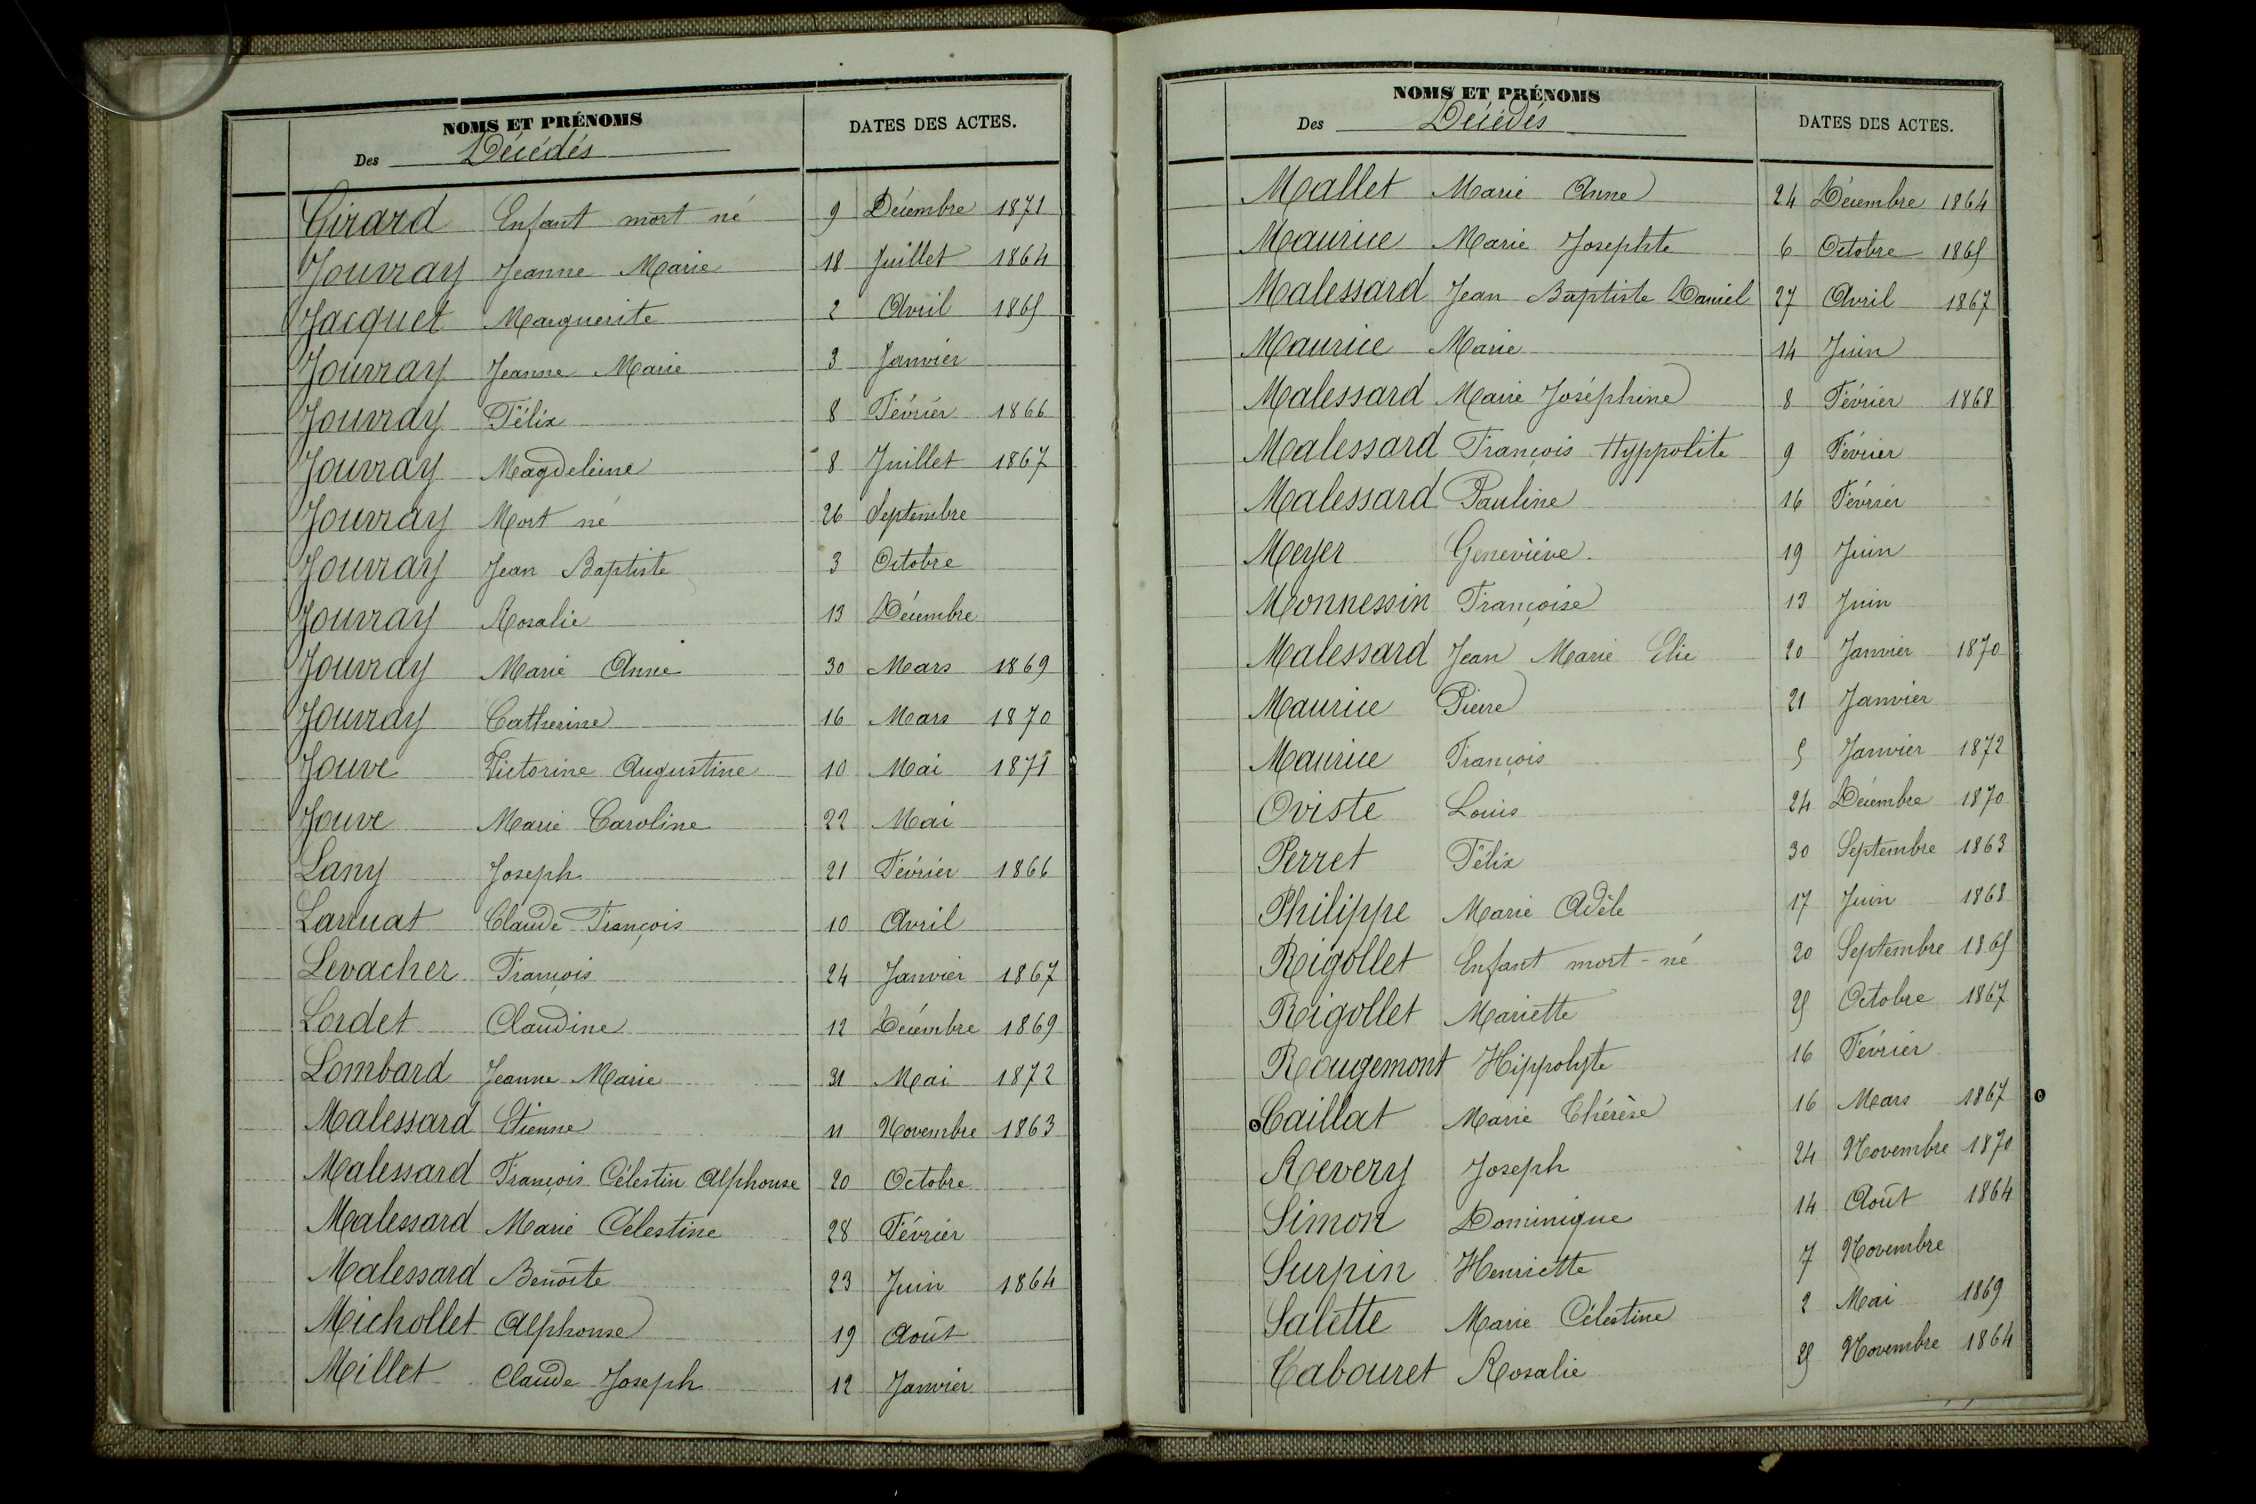 NOMS ET PRÉNOMS
Des Décédés
DATES DES ACTES.
Girard Enfant mort né 9 Décembre 1871
Jouvray Jeanne Marie 18 Juillet 1864
Jacquet Marguerite 2 Avril 1865
Jouvray Jeanne Marie 3 Janvier
Jouvray Félix 8 Février 1866
Jouvray Magdeleine 8 Juillet 1867
Jouvray Mort né 26 Septembre
Jouvray Jean Baptiste 3 Octobre
Jouvray Rosalie 13 Décembre
Jouvray Marie Anne 30 Mars 1869
Jouvray Catherine 16 Mars 1870
Jouve Victorine Augustine 10 Mai 1871
Jouve Marie Caroline 22 Mai
Lany Joseph 21 Février 1866
Claude François 10 Avril
Levacher François 24 Janvier 1867
Lordet Claudine 12 Décembre 1869
Lombard Jeanne Marie 31 Mai 1872
Malessard Etienne 11 Novembre 1863
Malessard François Célestin Alphonse 20 Octobre
Malessard Marie Célestine 28 Février
Malessard Benoîte 23 Juin 1864
Michollet Alphonse 19 Août
Millet Claude Joseph 12 Janvier
NOMS ET PRÉNOMS
Des Décédés
DATES DES ACTES.
Mallet Marie Anne 24 Décembre 1864
Maurice Marie Josephte 6 Octobre 1865
Malessard Jean Baptiste Daniel 27 Avril 1867
Maurice Marie 14 Juin
Malessard Marie Joséphine 8 Février 1868
Malessard François Hyppolite 9 Février
Malessard Pauline 16 Février
Meyer Geneviève. 19 Juin
Monnessin Françoise 13 Juin
Malessard Jean Marie Elie 20 Janvier 1870
Maurice Pierre 21 Janvier
Maurice François 5 Janvier 1872
Oviste Louis 24 Décembre 1870
Perret Félix 30 Septembre 1863
Philippe Marie Adèle 17 Juin 1868
Rigollet Enfant mort-né 20 Septembre 1865
Rigollet Mariette 25 Octobre 1867
Rougemont Hippolyte 16 Février
Caillat Marie Thérèse 16 Mars 1867
Revery Joseph 24 Novembre 1870
Simon Dominique 14 Août 1864
Surpin Henriette 7 Novembre
Salette Marie Célestine 2 Mai 1869
Tabouret Rosalie 25 Novembre 1864